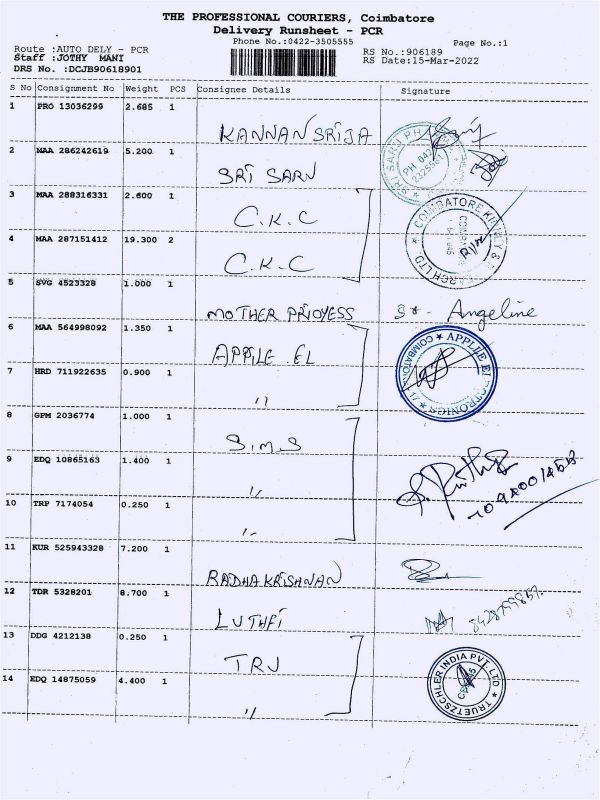 THE PROFESSIONAL COURIERS, Coimbatore
Delivery Runsheet - PCR
Phone No.:0422-3505555
Page No.:1
Route :AUTO DELY - PCR
RS No.:906189
Staff :JOTHY MANI
RS Date:15-Mar-2022
DRS No. :DCJB90618901
S No Consignment No Weight PCS Consignee Details Signature
1 PRO 13036299 2.685 1
KANNAN SRIJA
2 MAA 286242619 5.200 1
SRI SARU
3 MAA 288316331 2.600 1
C.K.C
4 MAA 287151412 19.300 2
C.K.C
5 SVG 4523328 1.000 1
MOTHER PRIOYESS Sr- Angeline
6 MAA 564998092 1.350 1
APPILE EL
7 HRD 711922635 0.900 1
"
8 GPM 2036774 1.000 1
S.M.S
9 EDQ 10865163 1.400 1
"
10 TRP 7174054 0.250 1
"
11 KUR 525943328 7.200 1
RADHAKRISHNAN
12 TDR 5328201 8.700 1
LUTHFI
13 DDG 4212138 0.250 1
TRU
14 EDQ 14875059 4.400 1
"
SRI SARU PH
PH 042
COIMBATORE KIDNEY &
RCH LTD
APPLIE ELECTRONICS
COIMBATORE
TRUETZSCHLER INDIA PVT. LTD